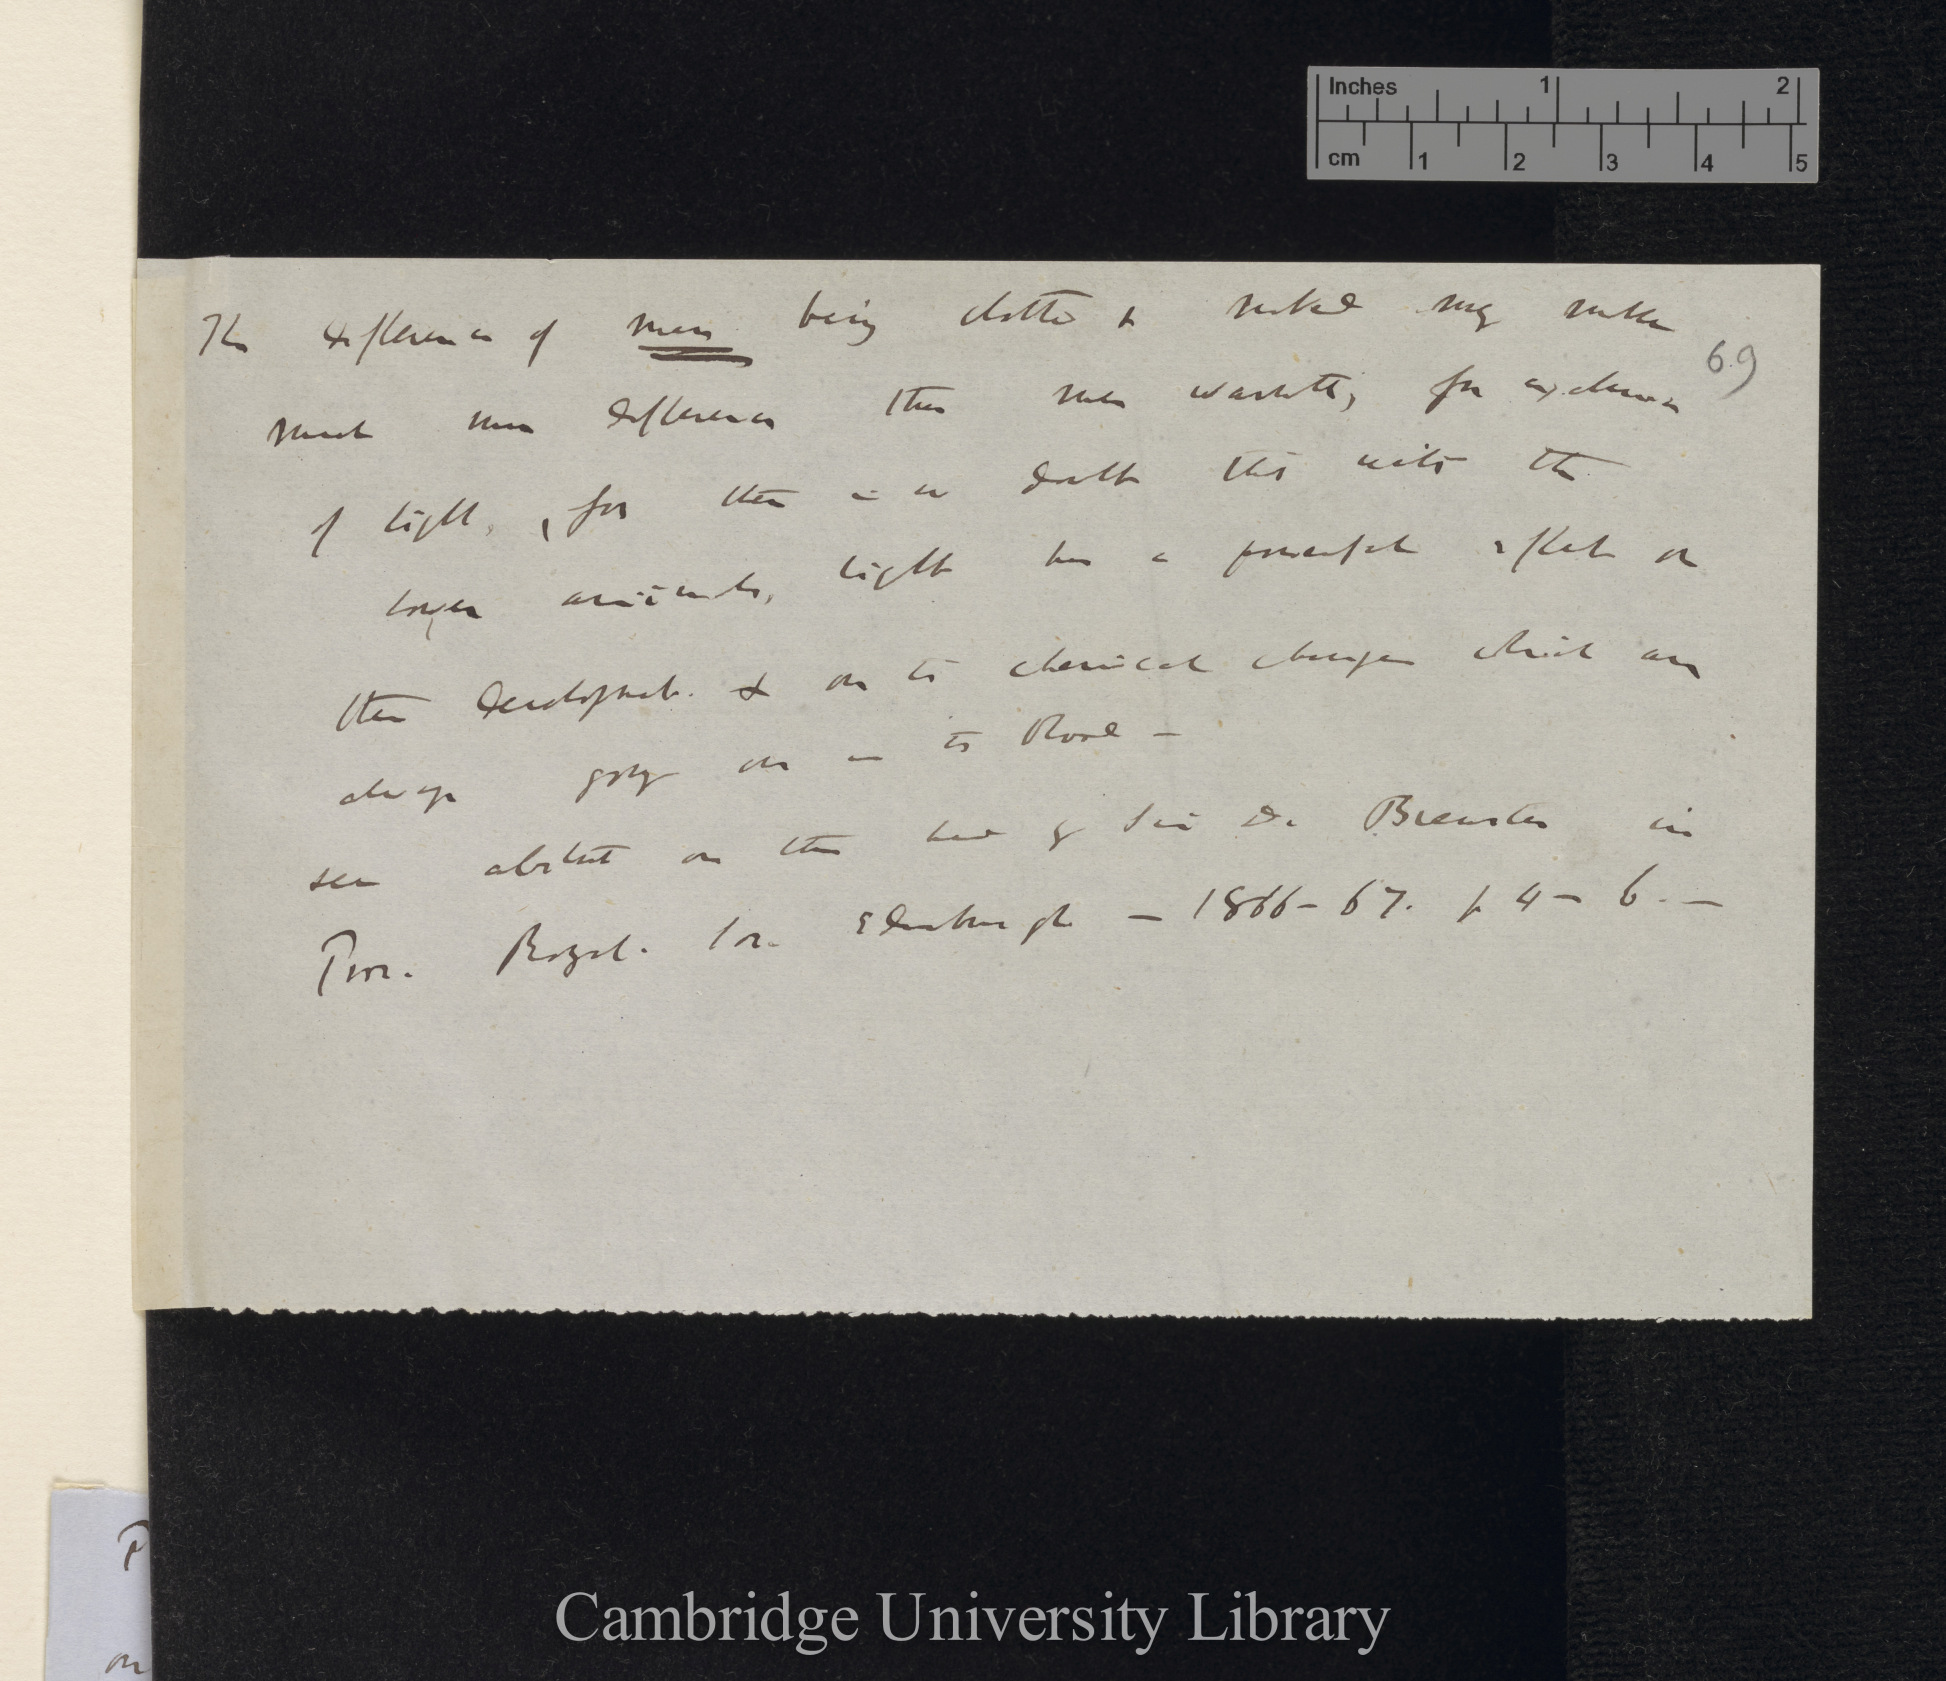 Inches 1 2
cm 1 2 3 4 5
69
The difference of men being clothed & naked may make
much more difference than mere warmth, for exclusion
of light, for there is no doubt that with the
lower animals, light has a powerful effect on
their development & on the chemical changes which are
always going on in the Blood —
see abstract on this head by Sir D. Brewster in
Proc. Royal. Soc. Edinburgh — 1866–67. p 4– 6. —
P
on
Cambridge University Library